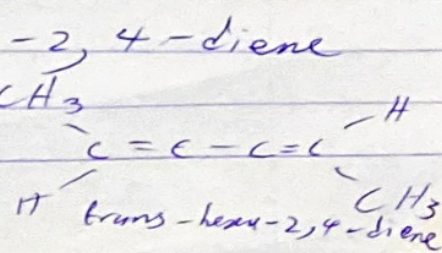 -2, 4-diene
CH3
H
C = C - C = C
H
CH3
trans-hexa-2,4-diene